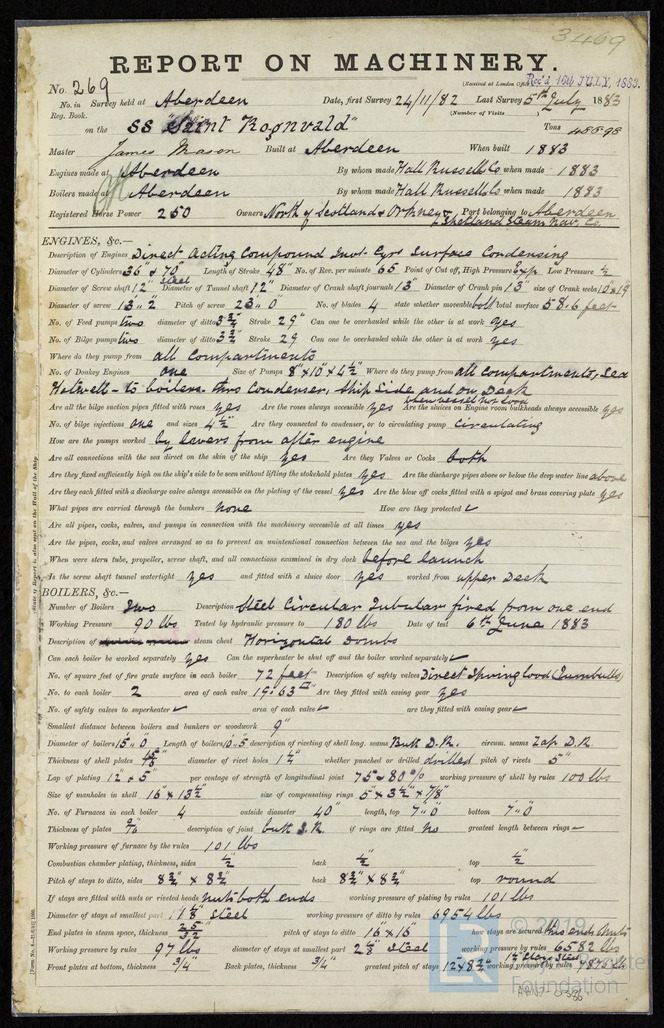 3469
REPORT ON MACHINERY.
No. 269 (Received at London Office Rec'd 10th JULY, 1883.
No. in Survey held at Aberdeen Date, first Survey 24/11/82 Last Survey 5th July 1883
Reg. Book. (Number of Visits
on the SS "Saint Rognvald" Tons
Master James Mason Built at Aberdeen When built 1883
Engines made at Aberdeen By whom made Hall Russell & Co when made 1883
Boilers made at Aberdeen By whom made Hall Russell & Co when made 1883
Registered Horse Power 250 Owners North of Scotland & Orkney & Shetland Steam Nav. Co. Port belonging to Aberdeen
ENGINES, &c.—
Description of Engines Direct Acting Compound Invt. Cyrs Surface Condensing
Diameter of Cylinders 36" & 70 Length of Stroke 48" No. of Rev. per minute 65 Point of Cut off, High Pressure Exp Low Pressure
Diameter of Screw shaft 12" Steel Diameter of Tunnel shaft 12" Diameter of Crank shaft journals 13" Diameter of Crank pin 13" size of Crank webs 10 x 19
Diameter of screw 13' 2" Pitch of screw 23' 0" No. of blades 4 state whether moveable bolt total surface 58.6 feet
No. of Feed pumps two diameter of ditto 3 3/4" Stroke 29" Can one be overhauled while the other is at work yes
No. of Bilge pumps two diameter of ditto 3 3/4" Stroke 29 Can one be overhauled while the other is at work yes
Where do they pump from all compartments
No. of Donkey Engines one Size of Pumps 8" x 10" x 4 1/2" Where do they pump from all compartments, Sea
Hotwell - to boilers. thro Condenser, Ship Side and on Deck
Are all the bilge suction pipes fitted with roses yes Are the roses always accessible yes Are the sluices on Engine room bulkheads always accessible yes
No. of bilge injections one and sizes 4 1/2" Are they connected to condenser, or to circulating pump circulating
How are the pumps worked by levers from after engine
Are all connections with the sea direct on the skin of the ship yes Are they Valves or Cocks both
Are they fixed sufficiently high on the ship's side to be seen without lifting the stokehold plates yes Are the discharge pipes above or below the deep water line above
Are they each fitted with a discharge valve always accessible on the plating of the vessel yes Are the blow off cocks fitted with a spigot and brass covering plate yes
What pipes are carried through the bunkers none How are they protected ✓
Are all pipes, cocks, valves, and pumps in connection with the machinery accessible at all times yes
Are the pipes, cocks, and valves arranged so as to prevent an unintentional connection between the sea and the bilges yes
When were stern tube, propeller, screw shaft, and all connections examined in dry dock before launch
Is the screw shaft tunnel watertight yes and fitted with a sluice door yes worked from upper Deck
BOILERS, &c.—
Number of Boilers Two Description Steel Circular Tubular fired from one end
Working Pressure 90 lbs Tested by hydraulic pressure to 180 lbs Date of test 6th June 1883
Description of steam chest Horizontal Dombs
Can each boiler be worked separately yes Can the superheater be shut off and the boiler worked separately ✓
No. of square feet of fire grate surface in each boiler 72 feet Description of safety valves Direct Spring load (Turnbulls)
No. to each boiler 2 area of each valve 19.63" Are they fitted with easing gear yes
No. of safety valves to superheater ✓ area of each valve ✓ are they fitted with easing gear ✓
Smallest distance between boilers and bunkers or woodwork 9"
Diameter of boilers 15' 0" Length of boilers 10' 5" description of riveting of shell long. seams Butt D.R. circum. seams Lap D.R.
Thickness of shell plates diameter of rivet holes 1 1/4" whether punched or drilled drilled pitch of rivets 5"
Lap of plating 12" & 5" per centage of strength of longitudinal joint 75 - 80 % working pressure of shell by rules 100 lbs
Size of manholes in shell 16" x 13 1/2" size of compensating rings 5" x 3 1/2" x 7/8"
No. of Furnaces in each boiler 4 outside diameter 40" length, top 7' 0" bottom 7' 0"
Thickness of plates 9/16 description of joint butt S.R. if rings are fitted no greatest length between rings ✓
Working pressure of furnace by the rules 101 lbs
Combustion chamber plating, thickness, sides 1/2" back 1/2" top 1/2"
Pitch of stays to ditto, sides 8 3/4" x 8 3/4" back 8 3/4" x 8 3/4" top round
If stays are fitted with nuts or riveted heads nuts both ends working pressure of plating by rules 101 lbs
Diameter of stays at smallest part 1 1/8" steel working pressure of ditto by rules 6954 lbs
End plates in steam space, thickness 25/32" pitch of stays to ditto 16" x 16" how stays are secured
Working pressure by rules 97 lbs diameter of stays at smallest part 2 1/8" steel working pressure by rules 6582 lbs
Front plates at bottom, thickness 3/4" Back plates, thickness 3/4" greatest pitch of stays 12" x 8 3/4" working pressure by rules
© 2019
Lloyd's Register
Foundation